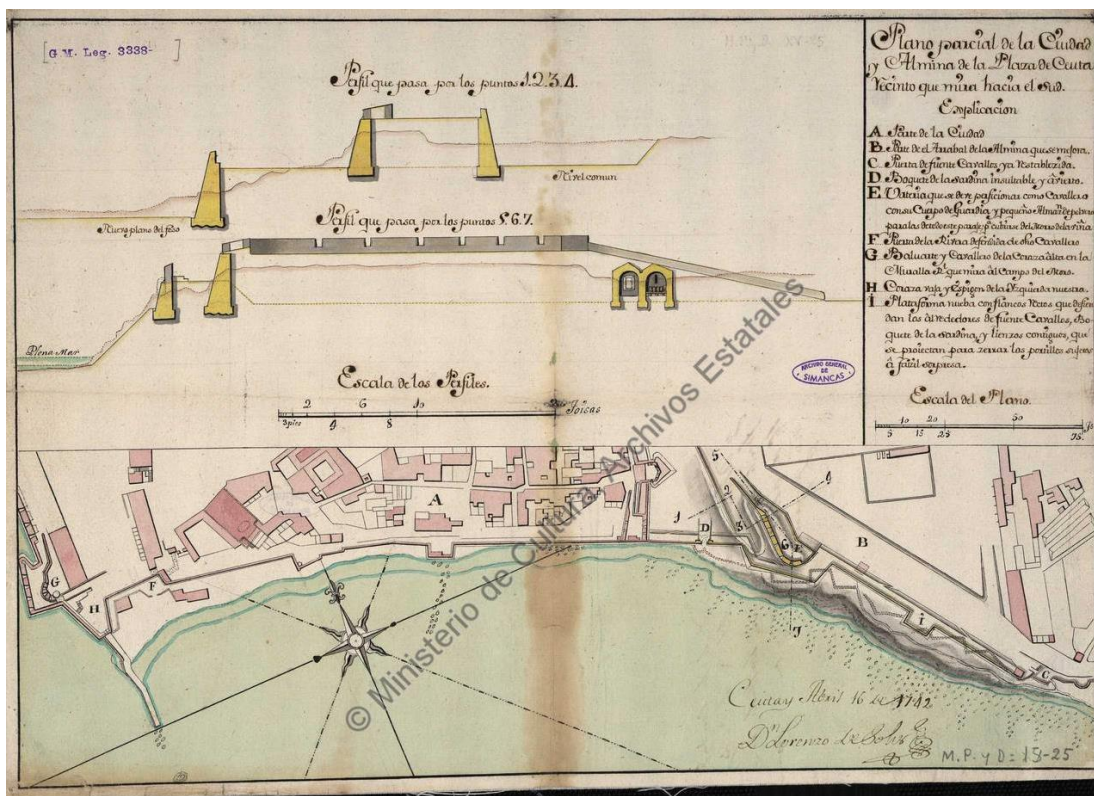 [G.M. Leg. 3338- ]
Perfil que pasa por los puntos 1.2.3.4.
Nivel comun
Nuevo plano del foso
Perfil que pasa por los puntos 5.6.7.
Plena Mar
Escala de los Perfiles.
2 6 10 20 Toisas
3 pies 4 8
ARCHIVO GENERAL
DE
SIMANCAS
Plano parcial de la Ciudad
y Almina de la Plaza de Ceuta
Recinto que mira hacia el Sud.
Explicacion
A Parte de la Ciudad
B Parte de el Arrabal de la Almina que se mejora.
C Puerta de fuente Cavallos, ya restablezida.
D Boquete de la Sardina insultable y avierto.
E Vateria que se deve perficionar como Cavallero
con su Cuerpo de Guardia y pequeño Almaz.
F Puerta de la Rivera defendida de dho Cavallero
G Baluarte y Cavallero de la Coraza alta en la
Muralla Rl. que mira al Campo del Moro.
H Coraza vaja y Espigon de la Izquierda nuestra.
I Plataforma nueba con flancos Retos que defien
dan los alrededores de fuente Cavallos, Bo
quete de la Sardina, y lienzos contiguos, que
se proiectan para zerrar los portillos sugetos
á fazil sorpresa.
Escala del Plano.
10 20 50
5 15 25 75
A
B
C
D
E
F
G
H
I
1
2
3
4
5
6
7
© Ministerio de Cultura Archivos Estatales
Ceuta y Abril 16 de 1742
Dn. Lorenzo de Solis
M.P. y D: 15-25